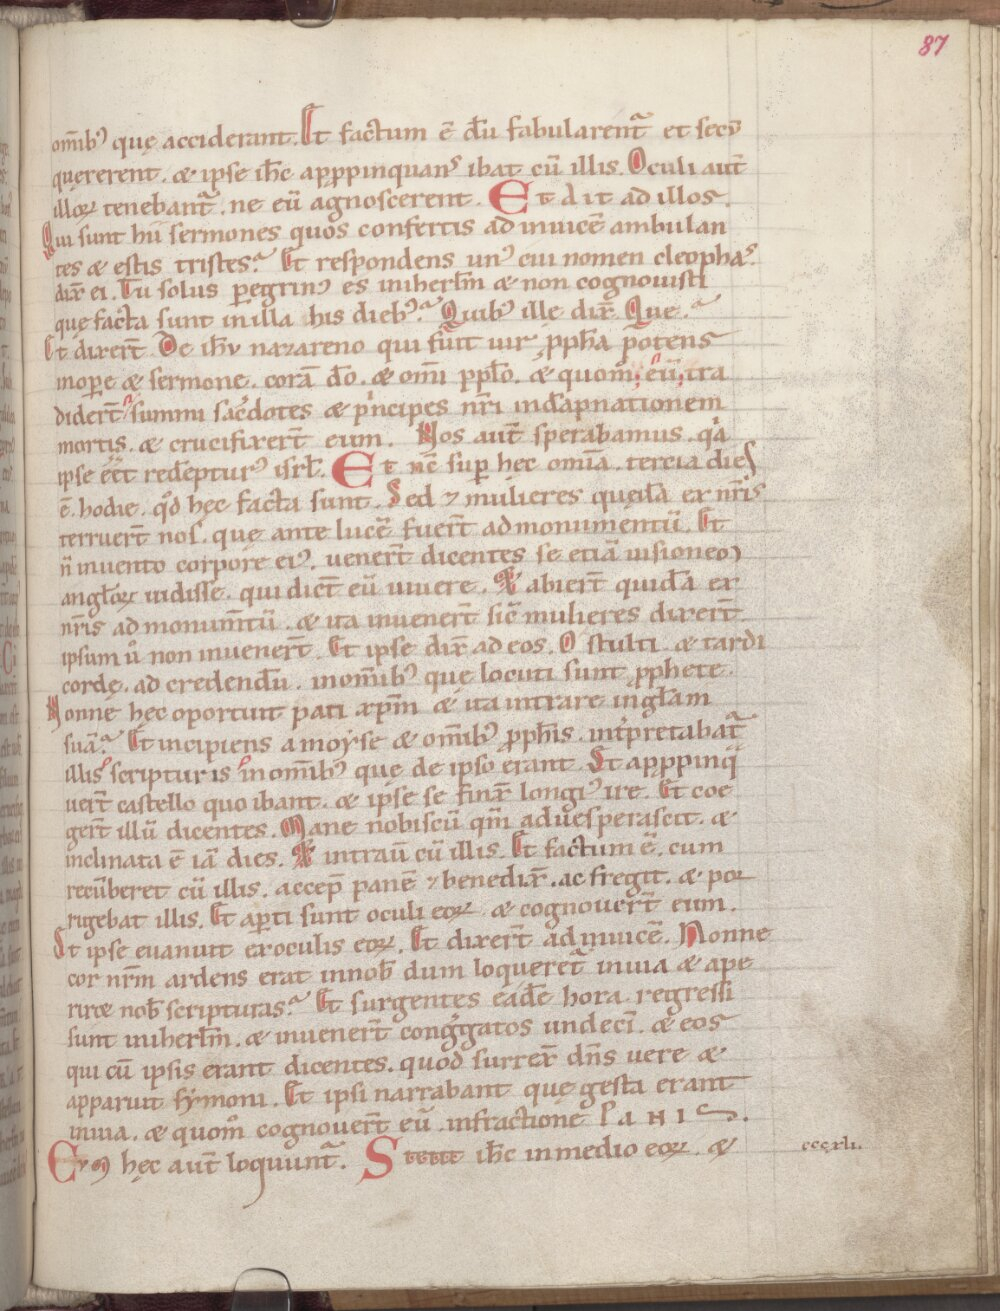 87
om̄ib᷒ quę acciderant. Et factum ē dū fabularent᷑ et secū
quererent. & ipse ih̄c apꝓpinquans ibat cū illis. Oculi aut̄
illoꝝ tenebant᷑. ne eū agnoscerent. Et dit ad illos.
Qui sunt hii sermones quos confertis ad inuicē ambulan
tes & estis tristes? Et respondens un᷒ cui nomen cleophas.
dix̄ ei. Tu solus ꝑegrin᷒ es in iherl̄m & non cognouisti
quę facta sunt in illa his dieb᷒? Quib᷒ ille dix̄. Que?
Et dixer̄t. De ih̄u nazareno qui fuit uir ꝓph̄a potens
in oꝑe & sermone. corā dō. & om̄i ppl̄o. & quom̄ eū tra
dider̄t summi sac̄dotes & p̄ncipes nr̄i in dāpnationem
mortis. & crucifixer̄t eum. Nos aut̄ sperabamus. q̇a
ipse eēt redeptur᷒ isrl̄. Et nc̄ suꝑ hęc om̄ia. tercia dies
ē. hodie. qd̄ hęc facta sunt. Sed ⁊ mulieres quęda ex nr̄is
terruer̄t nos. quę ante lucē fuer̄t ad monumentū. Et
n̄ inuento corpore ei᷒. uener̄t dicentes se etiā uisionem
angl̄oꝝ uidisse. qui dict̄ eū uiuere. Et abier̄t quida ex
nr̄is ad monum̄tū. & ita inuener̄t sic̄ mulieres dixer̄t.
ipsum u̇ non inuener̄t. Et ipse dix̄ ad eos. O stulti. & tardi
corde. ad credendū. in om̄ib᷒ que locuti sunt ꝓphete.
Nonne hęc oportuit pati xp̄m & ita intrare in gl̄am
suā? Et incipiens a moyse & om̄ib᷒ ꝓph̄is. int̄pretabat᷑
illis scripturis in om̄ib᷒ que de ipso erant. Et apꝓpinq̇
uer̄t castello quo ibant. & ipse se finx̄ longi᷒ ire. Et coe
ger̄t illū dicentes. Mane nobiscū qm̄ aduesperascit. &
inclinata ē iā dies. Et intrau̅ cū illis. Et factum ē. cum
recūberet cū illis. accep̄ panē ⁊ benedix̄. ac fregit. & por
rigebat illis. Et aꝑti sunt oculi eoꝝ & cognouer̄t eum.
Et ipse euanuit ex oculis eoꝝ. Et dixer̄t ad inuicē. Nonne
cor nr̄m ardens erat in nob̄ dum loqueret᷑ in uia & ape
riret nob̄ scripturas? Et surgentes eadē hora regressi
sunt in iherl̄m. & inuener̄t cong̃gatos undeci̅. & eos
qui cū ipsis erant dicentes. quod surrex̄ dn̄s uere &
apparuit symoni. Et ipsi narrabant quę gesta erant
in uia. & quom̄ cognouer̄t eū in fractione PANIS.
hęc aut̄ loquunt᷑. Stetit ih̄c in medio eoꝝ. &
cccxli.